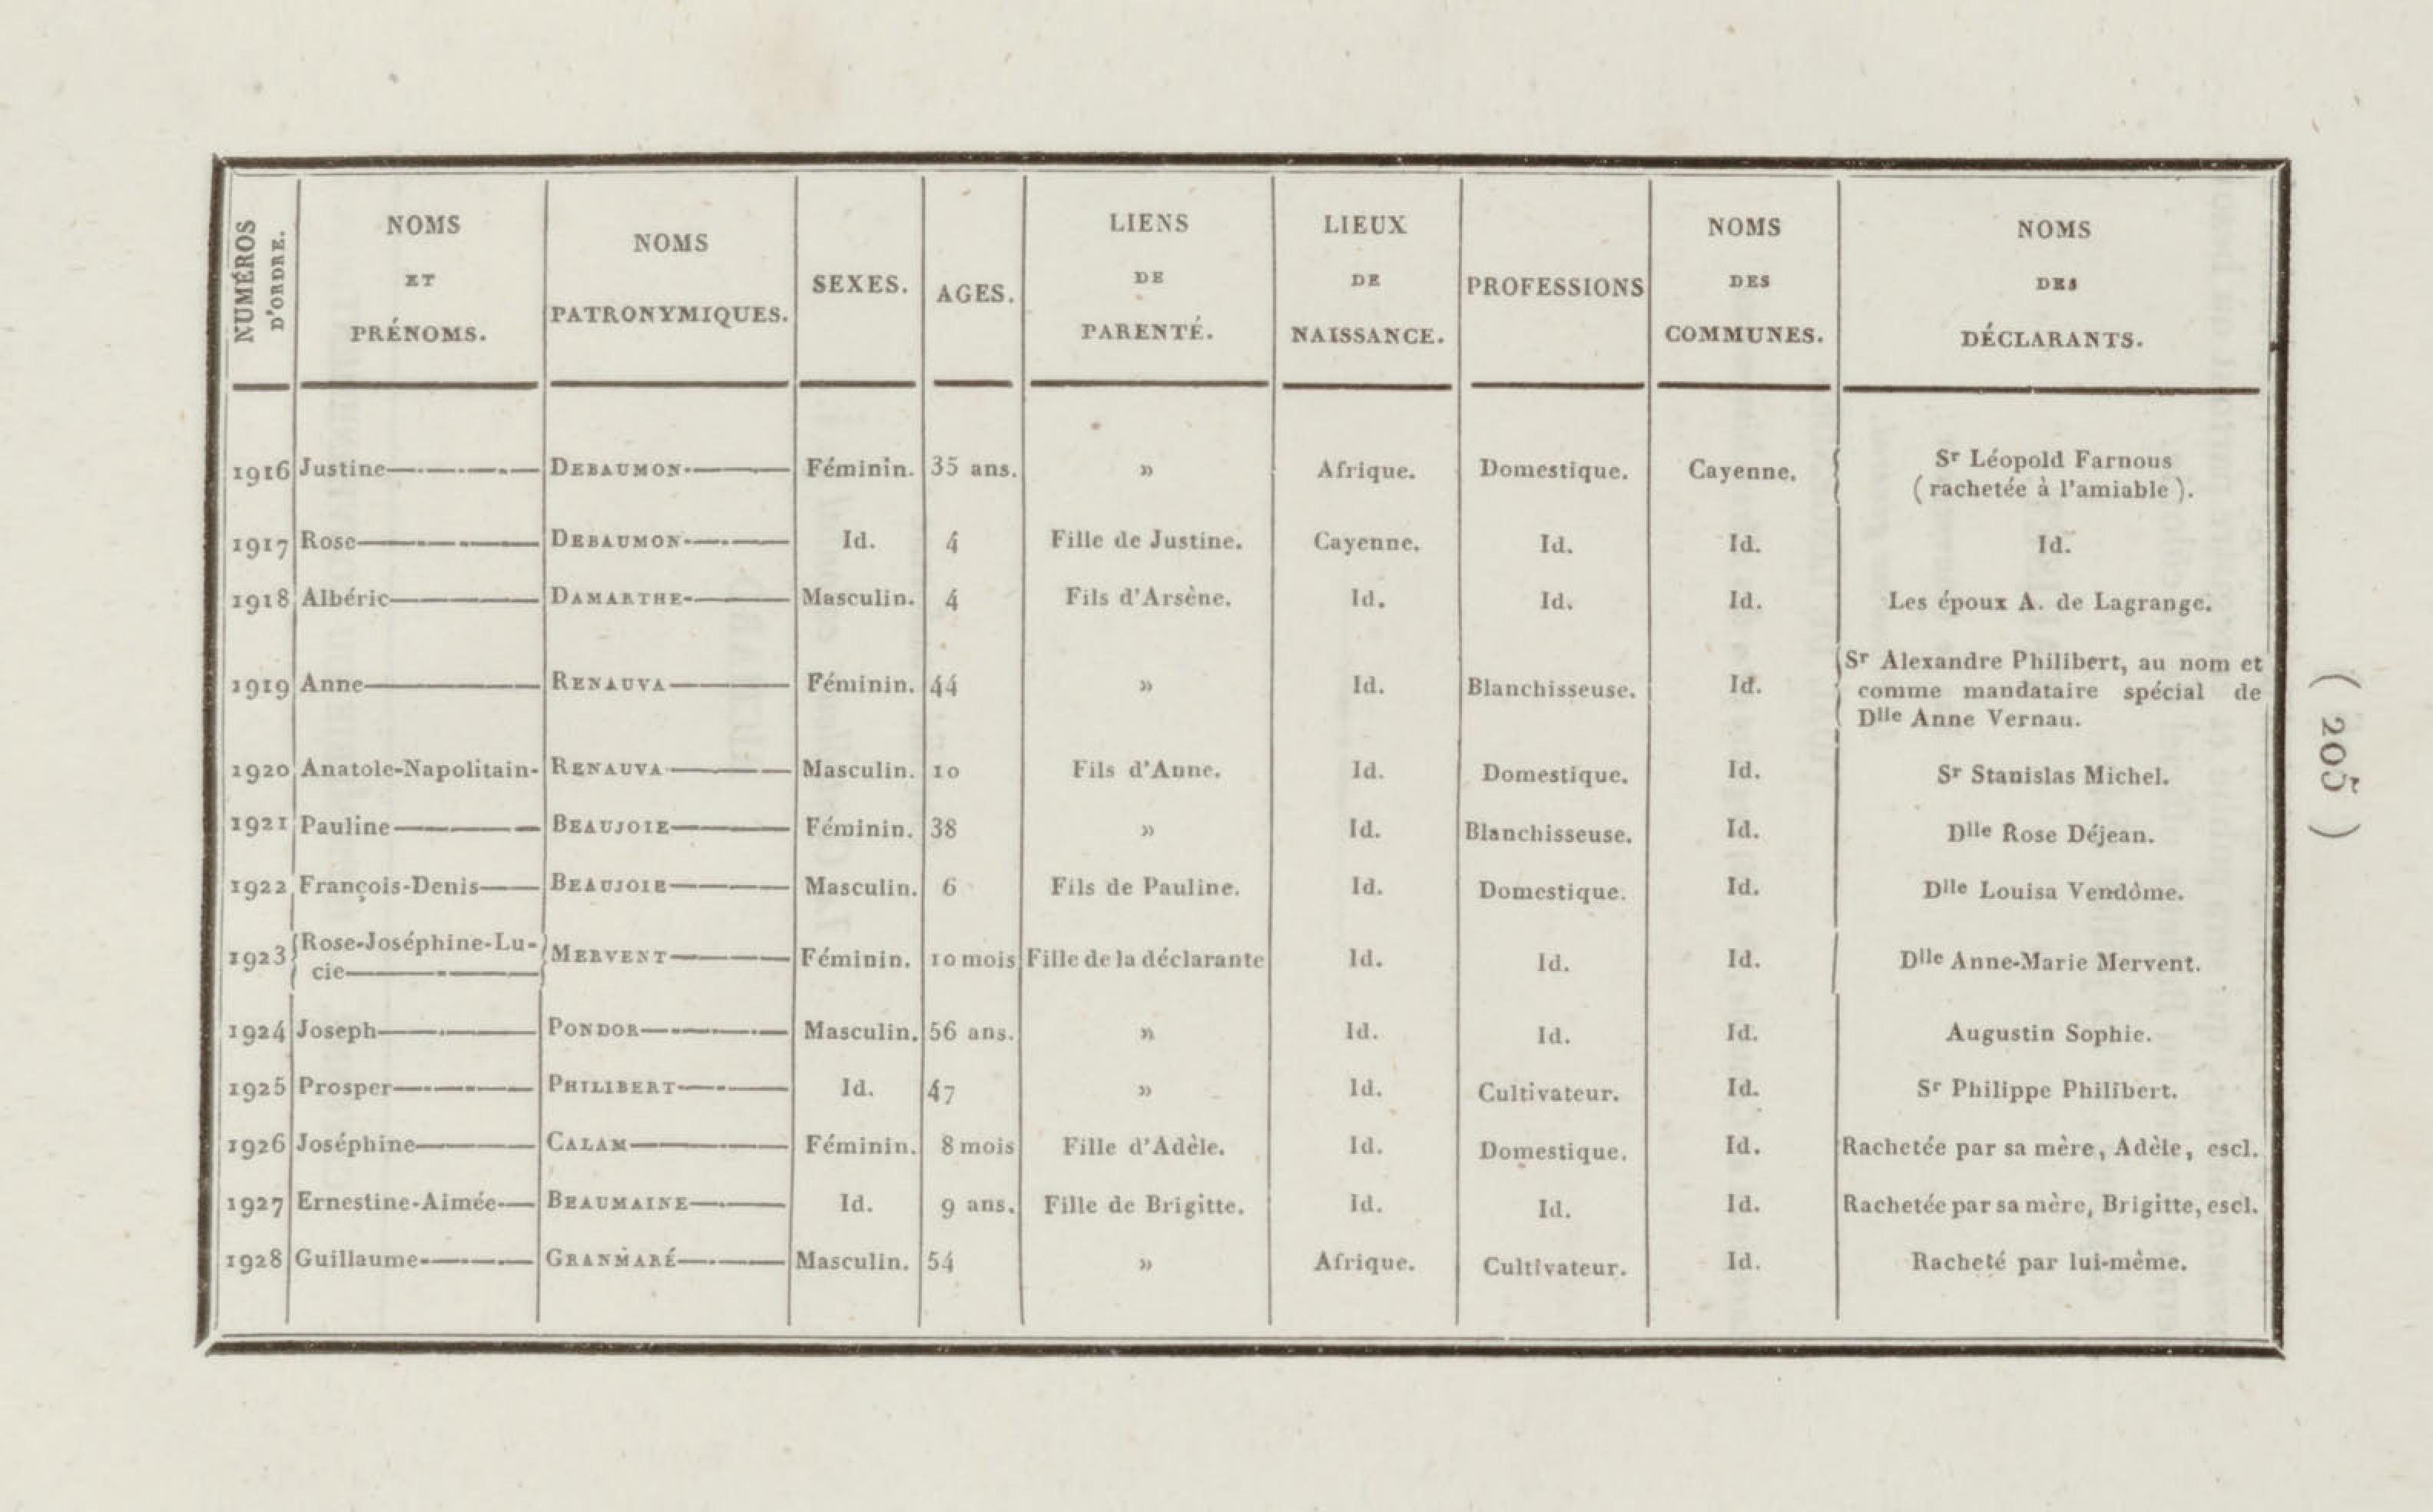 NUMÉROS D'ORDRE. | NOMS ET PRÉNOMS. | NOMS PATRONYMIQUES. | SEXES. | AGES. | LIENS DE PARENTÉ. | LIEUX DE NAISSANCE. | PROFESSIONS | NOMS DES COMMUNES. | NOMS DES DÉCLARANTS.
1916 Justine DEBAUMON Féminin. 35 ans. » Afrique. Domestique. Cayenne. Sr Léopold Farnous
(rachetée à l'amiable).
1917 Rose DEBAUMON Id. 4 Fille de Justine. Cayenne. Id. Id. Id.
1918 Albéric DAMARTHE Masculin. 4 Fils d'Arsène. Id. Id. Id. Les époux A. de Lagrange.
1919 Anne RENAUVA Féminin. 44 » Id. Blanchisseuse. Id. Sr Alexandre Philibert, au nom et
comme mandataire spécial de
Dlle Anne Vernau.
1920 Anatole-Napolitain- RENAUVA Masculin. 10 Fils d'Anne. Id. Domestique. Id. Sr Stanislas Michel.
1921 Pauline BEAUJOIE Féminin. 38 » Id. Blanchisseuse. Id. Dlle Rose Déjean.
1922 François-Denis BEAUJOIE Masculin. 6 Fils de Pauline. Id. Domestique. Id. Dlle Louisa Vendôme.
1923 Rose-Joséphine-Lu-
cie MERVENT Féminin. 10 mois Fille de la déclarante Id. Id. Id. Dlle Anne-Marie Mervent.
1924 Joseph PONDOR Masculin. 56 ans. » Id. Id. Id. Augustin Sophie.
1925 Prosper PHILIBERT Id. 47 » Id. Cultivateur. Id. Sr Philippe Philibert.
1926 Joséphine CALAM Féminin. 8 mois Fille d'Adèle. Id. Domestique. Id. Rachetée par sa mère, Adèle, escl.
1927 Ernestine-Aimée BEAUMAINE Id. 9 ans. Fille de Brigitte. Id. Id. Id. Rachetée par sa mère, Brigitte, escl.
1928 Guillaume GRANMARÉ Masculin. 54 » Afrique. Cultivateur. Id. Racheté par lui-même.
( 205 )